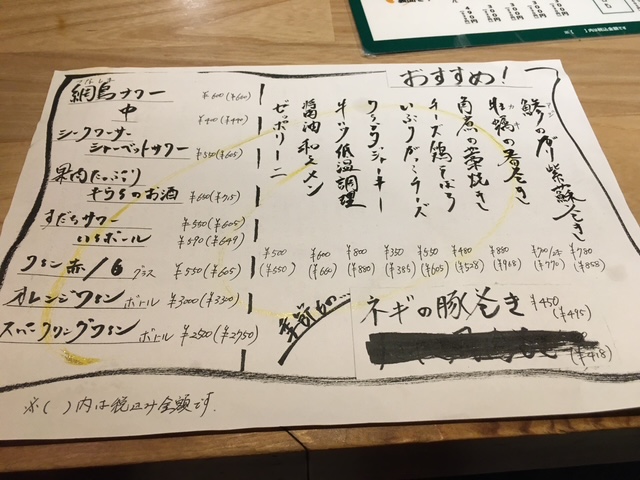 おすすめ!
鯵のガリ紫蘇巻き
アジ
¥780
(¥858)
¥700/2本
(¥770)
牡蠣の春巻き
カキ
¥880
(¥968)
角煮の藁焼き
¥480
(¥528)
チーズ鶏そぼろ
¥550
(¥605)
いぶりがっこチーズ
¥350
(¥385)
¥800
(¥880)
牛ハツ低温調理
¥600
(¥660)
醤油和えメン
¥500
(¥550)
ゼッポリーニ
網島サワー
¥600(¥660)
中
¥400(¥440)
シークワーサー
シャーベットサワー
¥550(¥605)
果肉たっぷり
そうちのお酒
¥650(¥715)
すだちサワー
¥550(¥605)
ボール
¥590(¥649)
ワイン 赤/白 グラス
¥550(¥605)
オレンジワイン ボトル ¥3000(¥3300)
スパークリングワイン ボトル ¥2500(¥2750)
季節もの…
ネギの豚巻き ¥450
(¥495)
(¥418)
※( )内は税込み金額です.